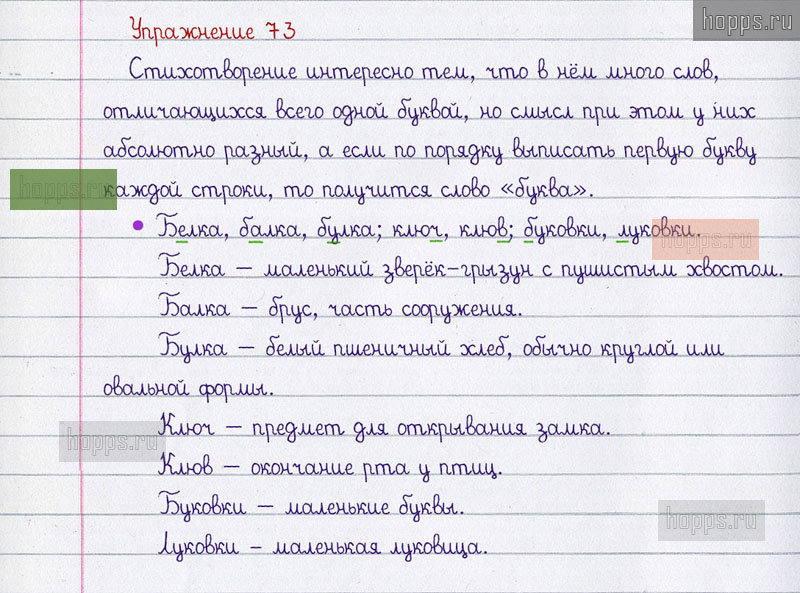 hopps.ru
Упражнение 73
Стихотворение интересно тем, что в нём много слов,
отличающихся всего одной буквой, но смысл при этом у них
абсолютно разный, а если по порядку выписать первую букву
hopps.ru
каждой строки, то получится слово «буква».
• Белка, балка, булка; ключ, клюв; буковки, луковки.
hopps.ru
Белка — маленький зверёк-грызун с пушистым хвостом.
Балка — брус, часть сооружения.
Булка — белый пшеничный хлеб, обычно круглой или
овальной формы.
Ключ — предмет для открывания замка.
hopps.ru
Клюв — окончание рта у птиц.
Буковки — маленькие буквы.
hopps.ru
Луковки – маленькая луковица.